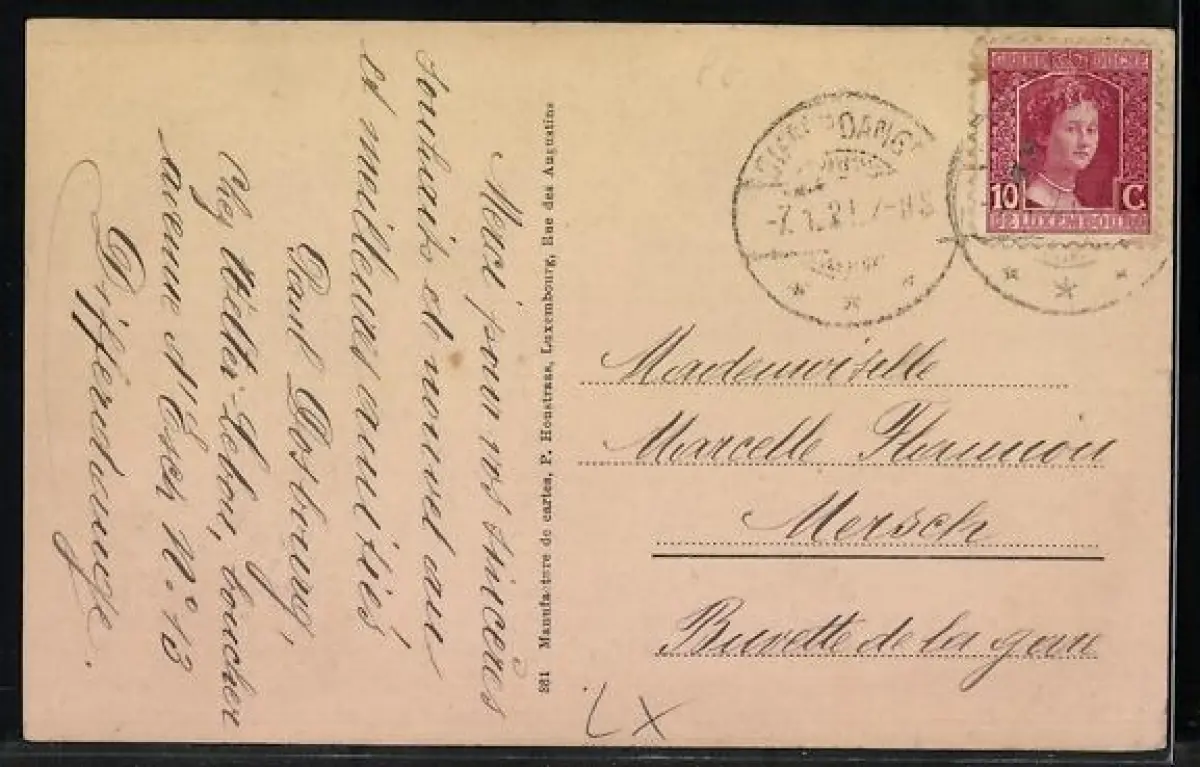 Merci pour vos sincères
souhaits et nouvel an
et meilleurs amitiés
Paul Dosbourg,
Chez Welter-Lebon, boucher
avenue d'Esch No. 13
Differdange.
281 Manufacture de cartes, P. Houstrass, Luxembourg, Rue des Augustins
DIFFERDANGE
-7.1.21. 7-8S
GRAND DUCHÉ
10 C.
DE LUXEMBOURG
Mademoiselle
Marcelle
Mersch
Buvette de la gare